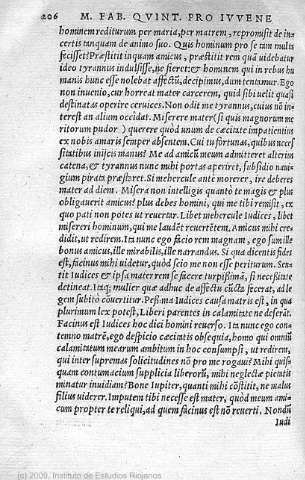 206 M. FAB. QVINT. PRO IVVENE
hominem rediturum per maria, per matrem, repromisit de in-
certis tanquam de animo suo. Quis hominum pro se tam multa
fecisset? Præstitit in quam amicus, præstitit rem quā uidebatur
ideo tyrannus indulsisse, ne fieret: & hominem qui in rebus hu
manis hunc esse nolebat affectū, decipimus, dum tentamur. Ego
non inuenio, cur horreat mater carcerem, quid sibi uelit quasi
destinatas operire ceruices. Non odit me tyrannus, cuius nō in-
terest an alium occidat. Miserere mater (si quis magnorum me
ritorum pudor) querere quòd unum de cæcitate impatientius
ex nobis amaris semper absentem. Cui tu fortunas, quibus neces
sitatibus inijcis manus? Me ad amicū meum admitteret alterius
catena, & tyrannus nunc mihi portas aperiret, subsidio naui-
gium pirata præstaret. Si mehercule antè morerer, ire deberes
mater ad diem. Misera non intelligis quantò te magis & plus
obligauerit amicus? plus debes homini, qui me tibi remisit, ex
quo pati non potes ut reuertar. Libet mehercule Iudices, libet
misereri hominum, qui me laudēt reuertētem, Amicus mihi cre
didit, ut redirem. Ita nunc ego facio rem magnam, ego sum ille
bonus amicus, ille mirabilis, ille narrandus. Si qua dicentis fides
est, facinus mihi uidetur, quòd scio me non esse periturum. Sen-
tit Iudices & ipsa mater rem se facere turpissimā, si necessitate
detineat. Itaq; mulier quæ adhuc de affectu cūcta fecerat, ad le
gem subitò cōuertitur. Pessima Iudices causa matris est, in qua
plurimùm lex potest, Liberi parentes in calamitate ne deserāt.
Facinus est Iudices hoc dici homini reuerso. Ita nunc ego con-
temno matrē, ego despicio cæcitatis obsequia, homo qui omniū
calamitatum mearum ambitum in hoc consumpsi, ut redirem,
qui inter supremas solicitudines nō pro me rogaui? Mihi quis-
quam contumaciam supplicij liberorū, mihi neglectæ pietatis
minatur inuidiam? Bone Iupiter, quanti mihi cōstitit, ne malus
filius uiderer. Imputem tibi necesse est mater, quòd meum ami-
cum propter te reliqui, ad quem facinus est nō reuerti. Nondū
Iudi
(c) 2009, Instituto de Estudios Riojanos